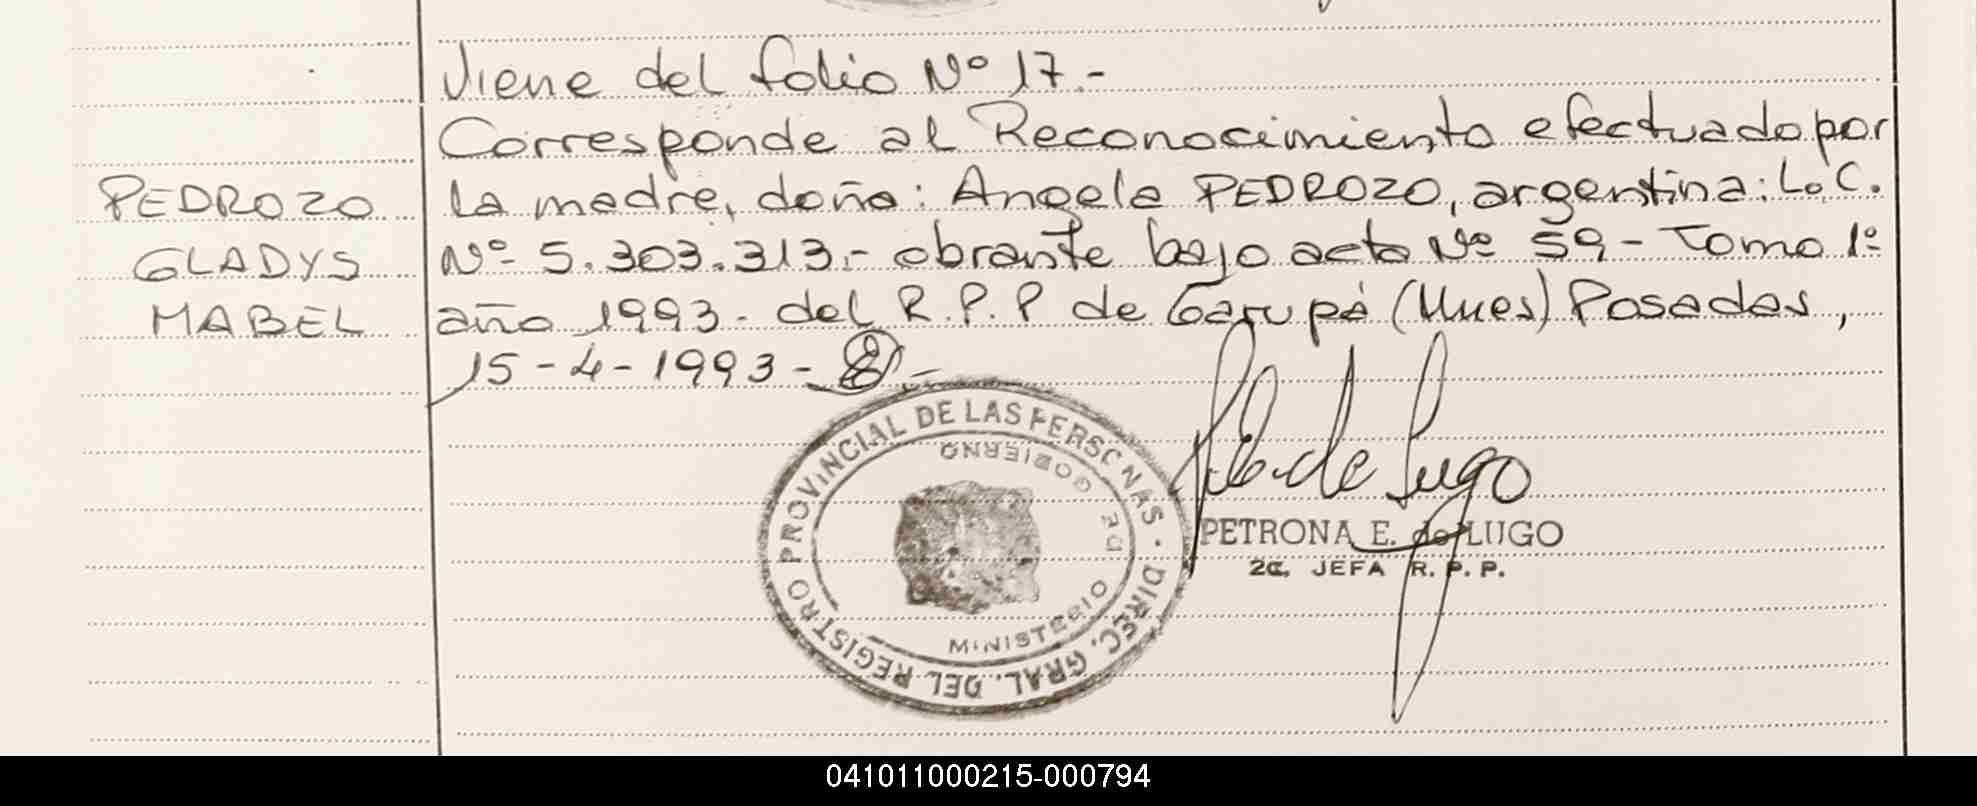 Viene del folio Nº 17.-
Corresponde al Reconocimiento efectuado por
la madre, doña: Angela PEDROZO, argentina: L.C.
Nº 5.303.313.- obrante bajo acta Nº 59 - Tomo 1º
año 1993 - del R.P.P de Garupá (Mnes) Posadas,
15-4-1993-
PEDROZO
GLADYS
MABEL
DIREC. GRAL. DEL REGISTRO PROVINCIAL DE LAS PERSONAS
MINISTERIO DE GOBIERNO
de Lugo
PETRONA E. de LUGO
2a. JEFA R. P. P.
041011000215-000794